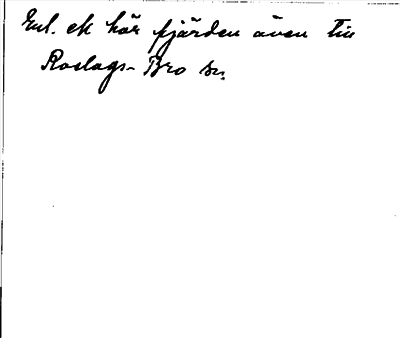 Enl. ek hör fjärden även till
Roslags-Bro sn.